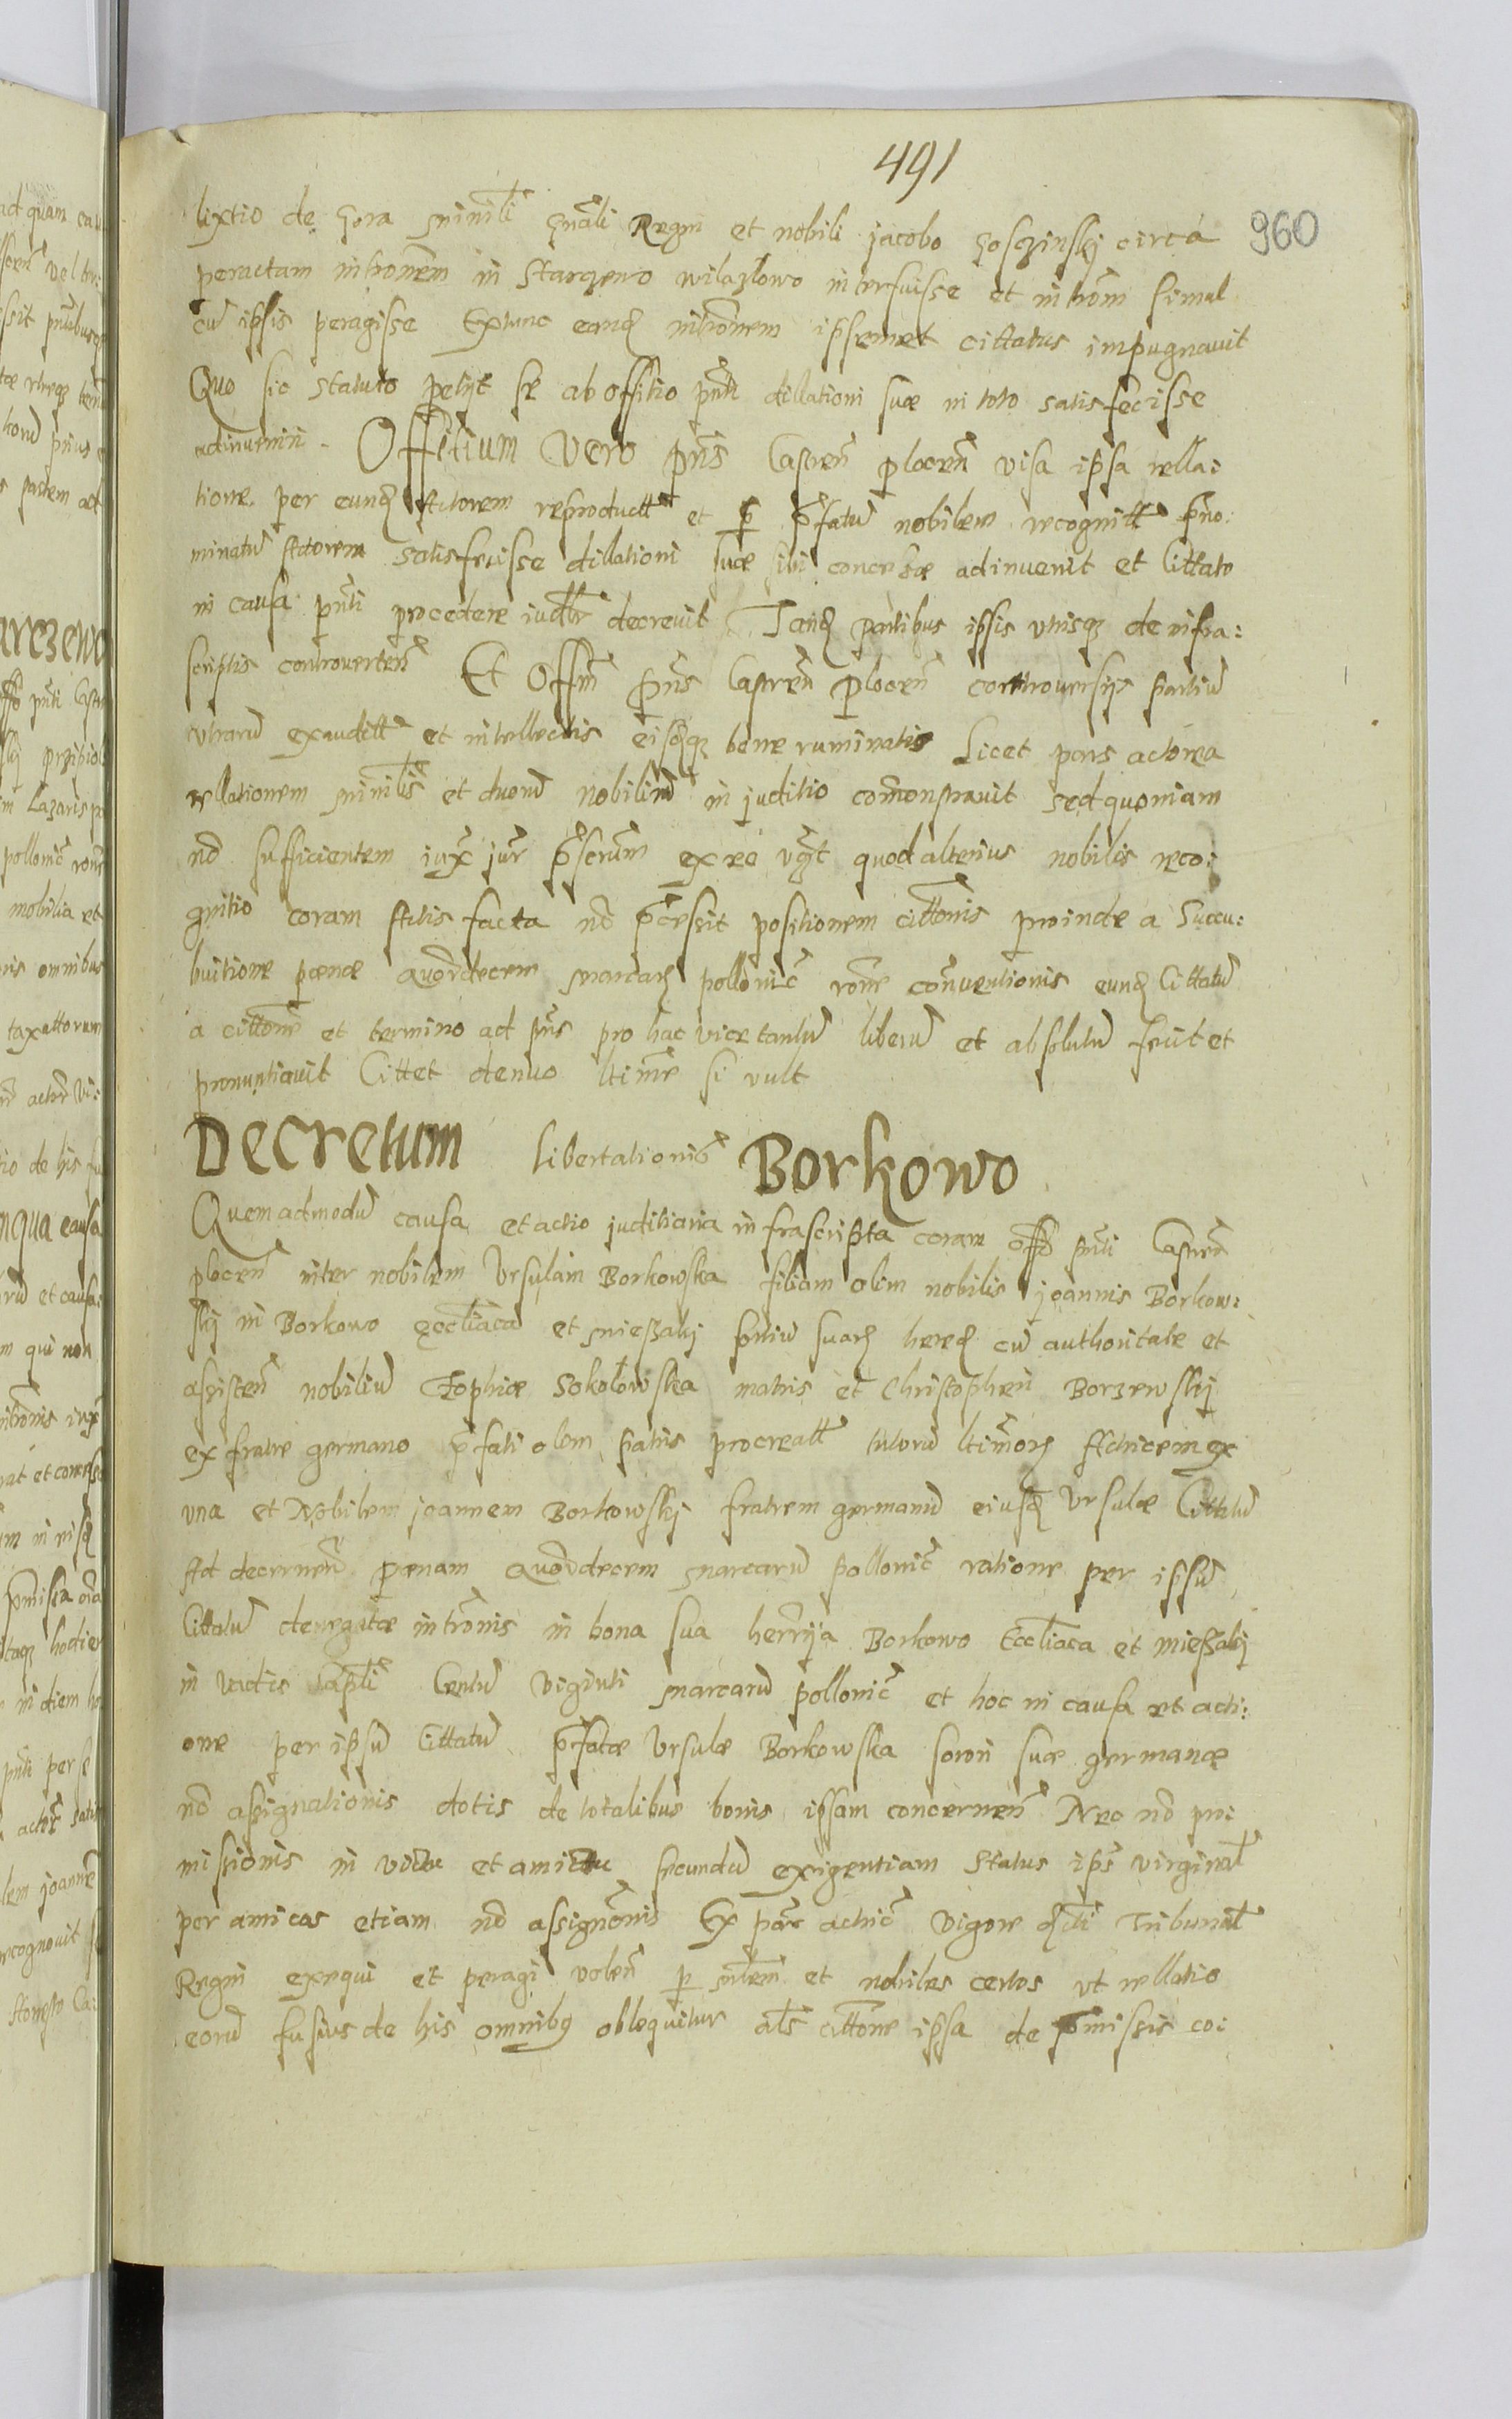 491
960
lixtio de Gora ministeriali gnali Regni et nobili jacobo Gosczinskj circa
peractam intronem in Starczewo wilazlowo interfuisse et introm simul
cu ipsis peragisse Extunc eand intronem ipsemet cittatus impugnauit
Quo sic statuto petijt se ab offitio pnti dillationi suæ in toto satisfecisse
adinueniri. Offitium Vero pns Castren plocen visa ipsa rella:
tione per eund Actorem reproductt et p pfatu nobilem recognitt pno:
minatu Actorem satisfecisse dillationi suæ sibi concessæ adinuenit et Cittato
in causa pnti procedere iudtr decreuit Tand partibus ipsis vtrisq de infra:
scriptis controuerten Et Offm pns Castren plocen controuersijs partiu
vtraru exauditt et intellectis eisqq bene ruminatis Licet pars actorea
rellationem minilis et duoru nobiliu in juditio commonstrauit sed quoniam
no sufficientem iux jur pscrum ex eo vgt quod alterius nobilis reco:
gnitio coram Actis facta no pcessit positionem cittonis proinde a Succu:
buitione pœnæ quordecem marcar pollonic rone conuentionis eund Cittatu
a cittone et termino ad pns pro hac vice tantu liberu et absolutu fecit et
pronuntiauit Cittet denuo ltime si vult
Decretum Libertationis Borkowo
Quemadmodu causa et actio juditiaria infrascripta coram offo pnti Castren
plocen inter nobilem Vrsulam Borkowska filiam olim nobilis joannis Borkow:
skj in Borkowo Eccliaca et mieszakj sortiu suar hered cu authoritate et
assisten nobiliu Zophiæ Sokolowska matris et Christopheri Borzewskj
ex fratre germano pfati olim patris procreatt tutoru ltimor Actricem ex
vna et Nobilem joannem Borkowskj fratrem germanu eiusd Vrsulæ Cittatu
Ad decernen pœnam quordecem marcaru pollonic ratione per ipsum
Cittatu denegatæ intronis in bona sua herrija Borkowo Eccliaca et mieszakj
in vadis capli Centu viginti marcaru pollonic et hoc in causa et acti:
one per ipsu Cittatu pfatæ Vrsulæ Borkowska sorori suæ germanæ
no assignationis dotis de totalibus bonis ipsam concernen Nec no pro:
missionis in victu et amictu secundu exigentiam status ips virginal
per amicos etiam no assignonis Ex parte actric vigore dcti Tribunal
Regni exequi et peragi volen p mlem et nobiles certos vt rellatio
eoru fusius de his omnibq obloquitur als cittone ipsa de pmissis co: